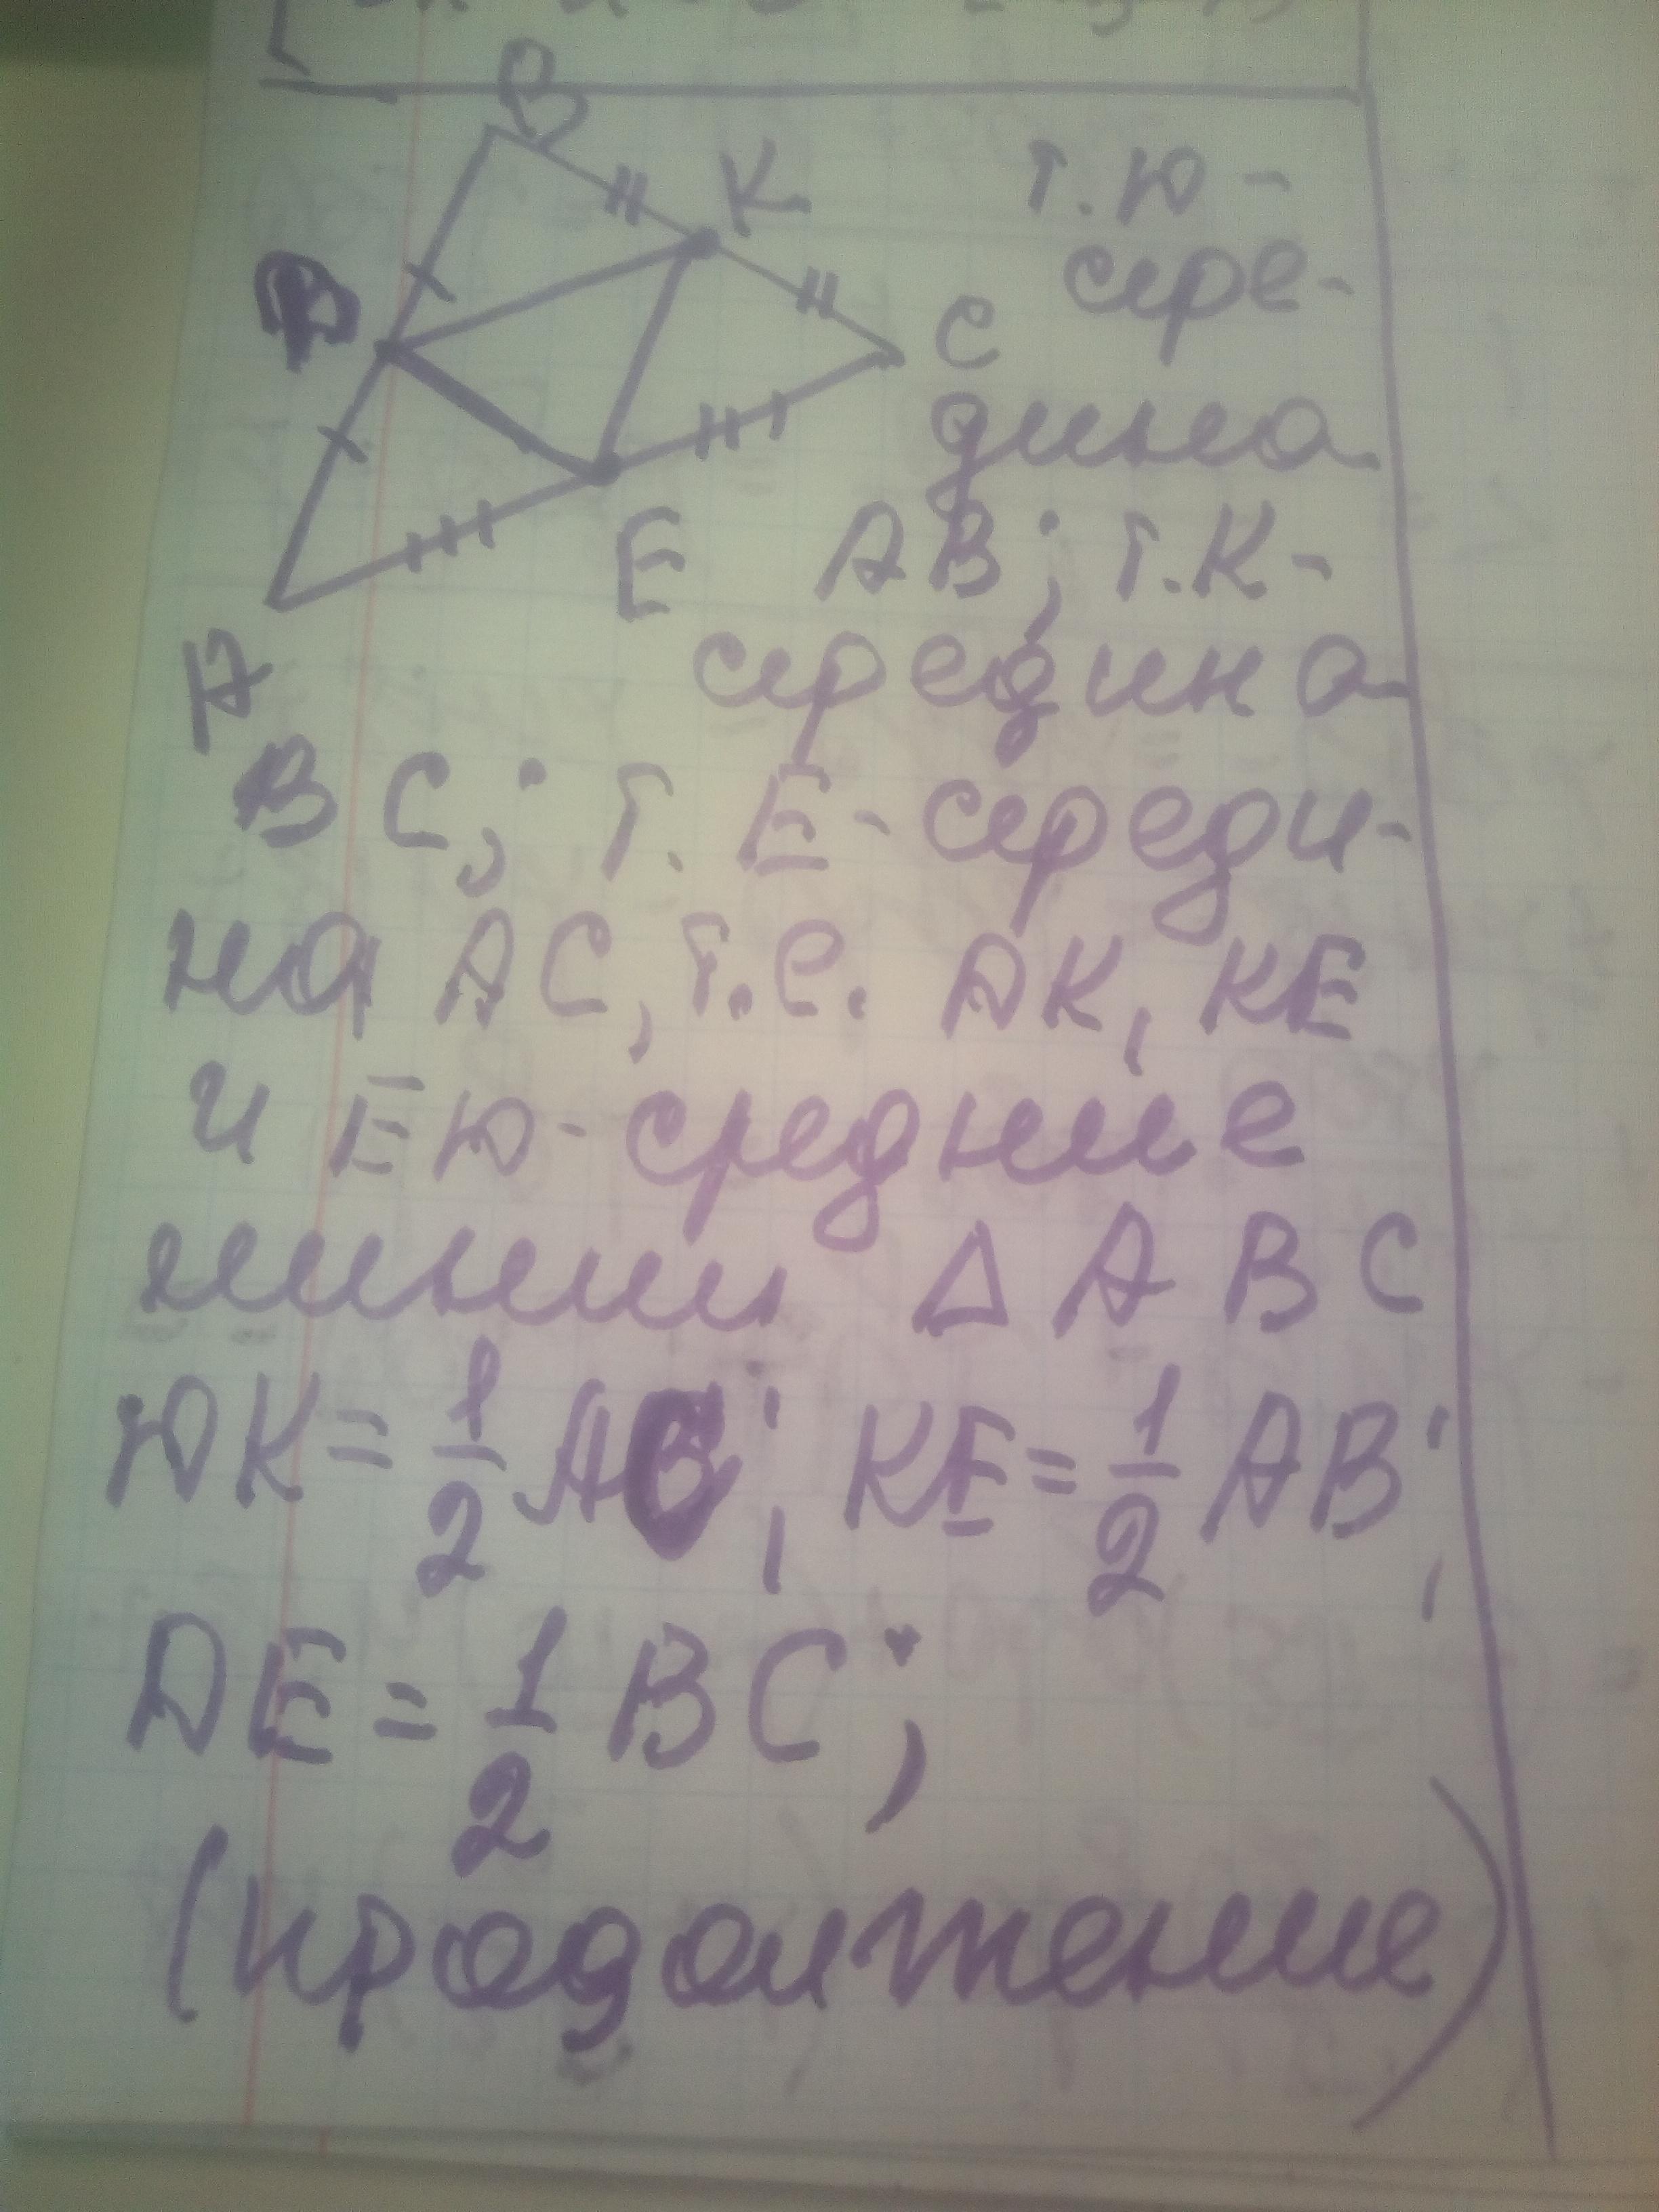 B
K
т. Ю -
сре-
D
C
дина
E
AB; т. K -
A
середина
BC; т. E - середи-
на AC, т.е. DK, KE
и EЮ - средние
линии Δ ABC
ЮK = 1/2 AC; KE = 1/2 AB;
DE = 1/2 BC;
(продолжение)